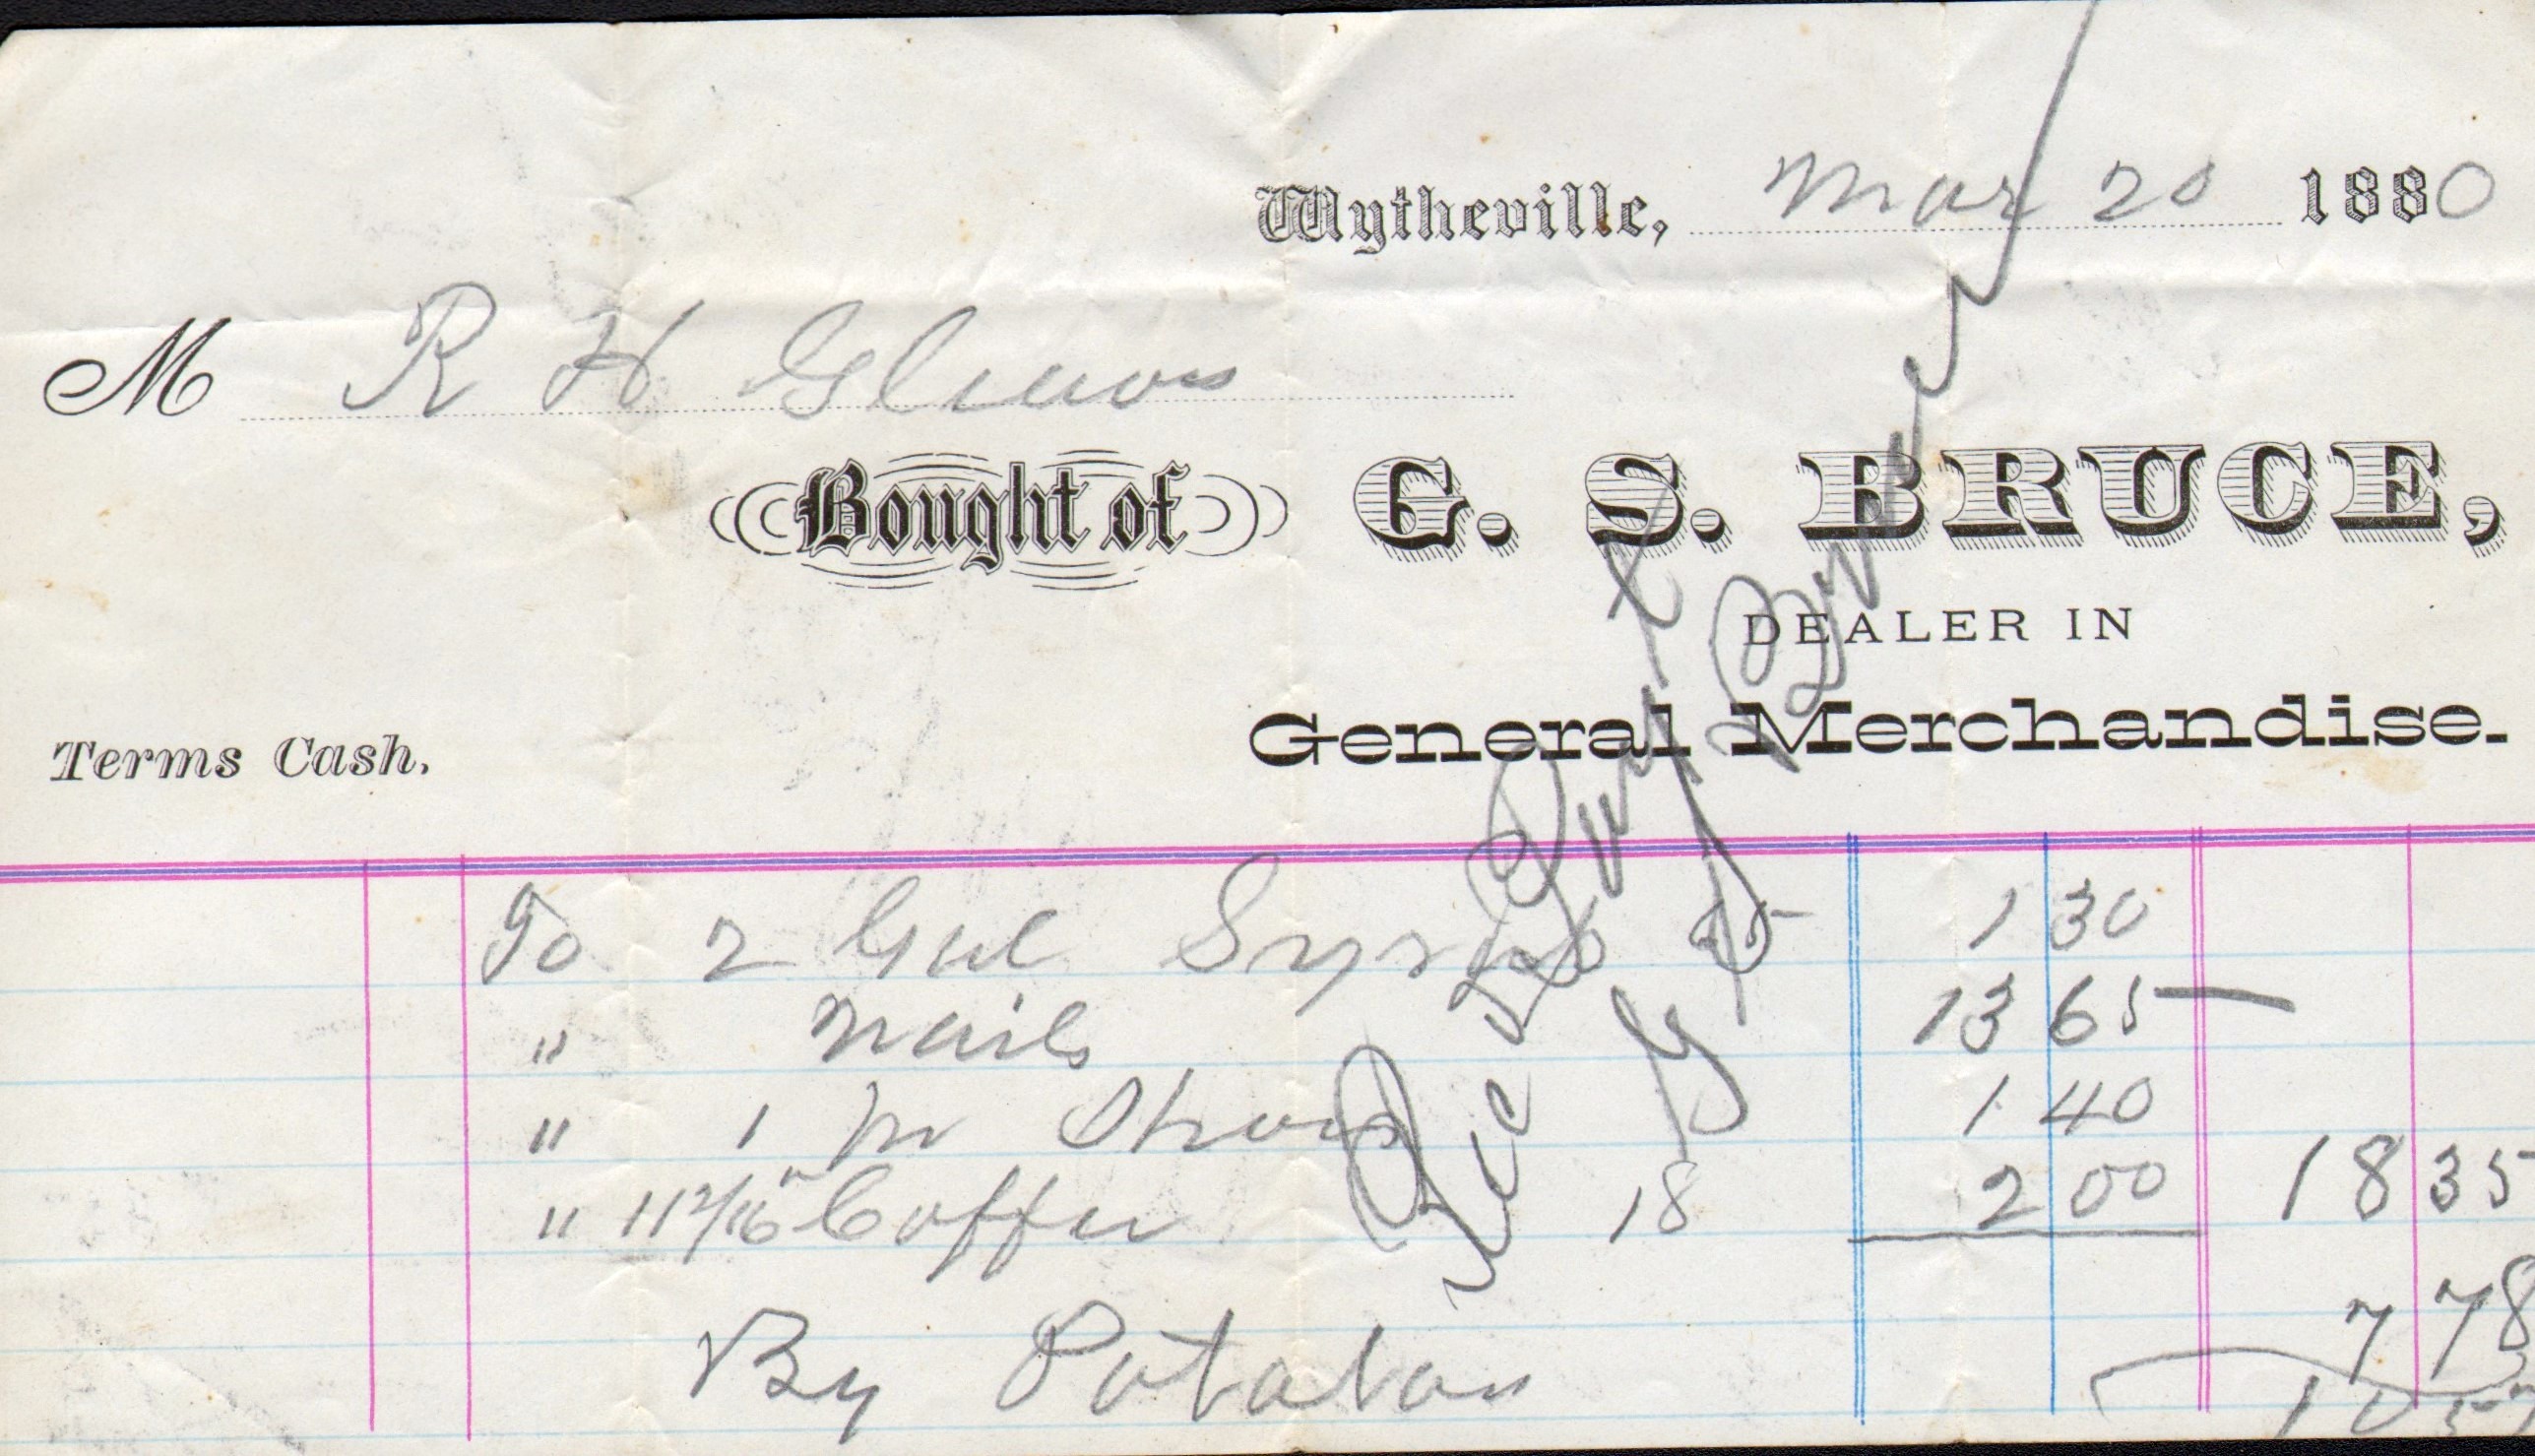 Wytheville, Mar 20 1880
M R H Gleaves
Bought of G. S. BRUCE,
DEALER IN
General Merchandise.
Terms Cash.
To 2 Gal Syrup 65 1 30
" Nails 13 65
" 1 pr Shoes 1 40
" 11 2/16 " Coffee 18 2 00 18 35
By Potatoes 7 78
10 57
Rec'd Payment
G S Bruce